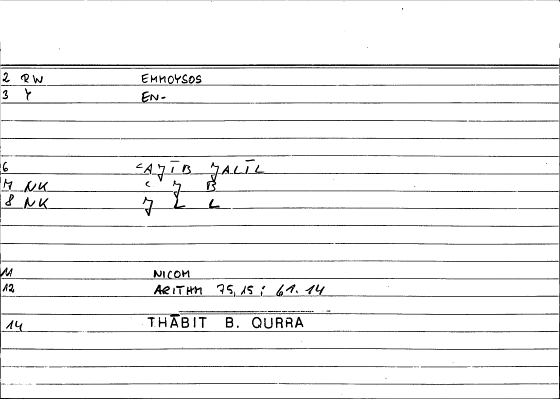 2 RW ΕΜΜΟΥΣΟΣ
3 Y EN-
6 ʿAǦĪB ǦALĪL
7 NK ʿ Ǧ B
8 NK Ǧ L L
11 NICOM
12 ARITHM 75,15; 61.14
14 THĀBIT B. QURRA